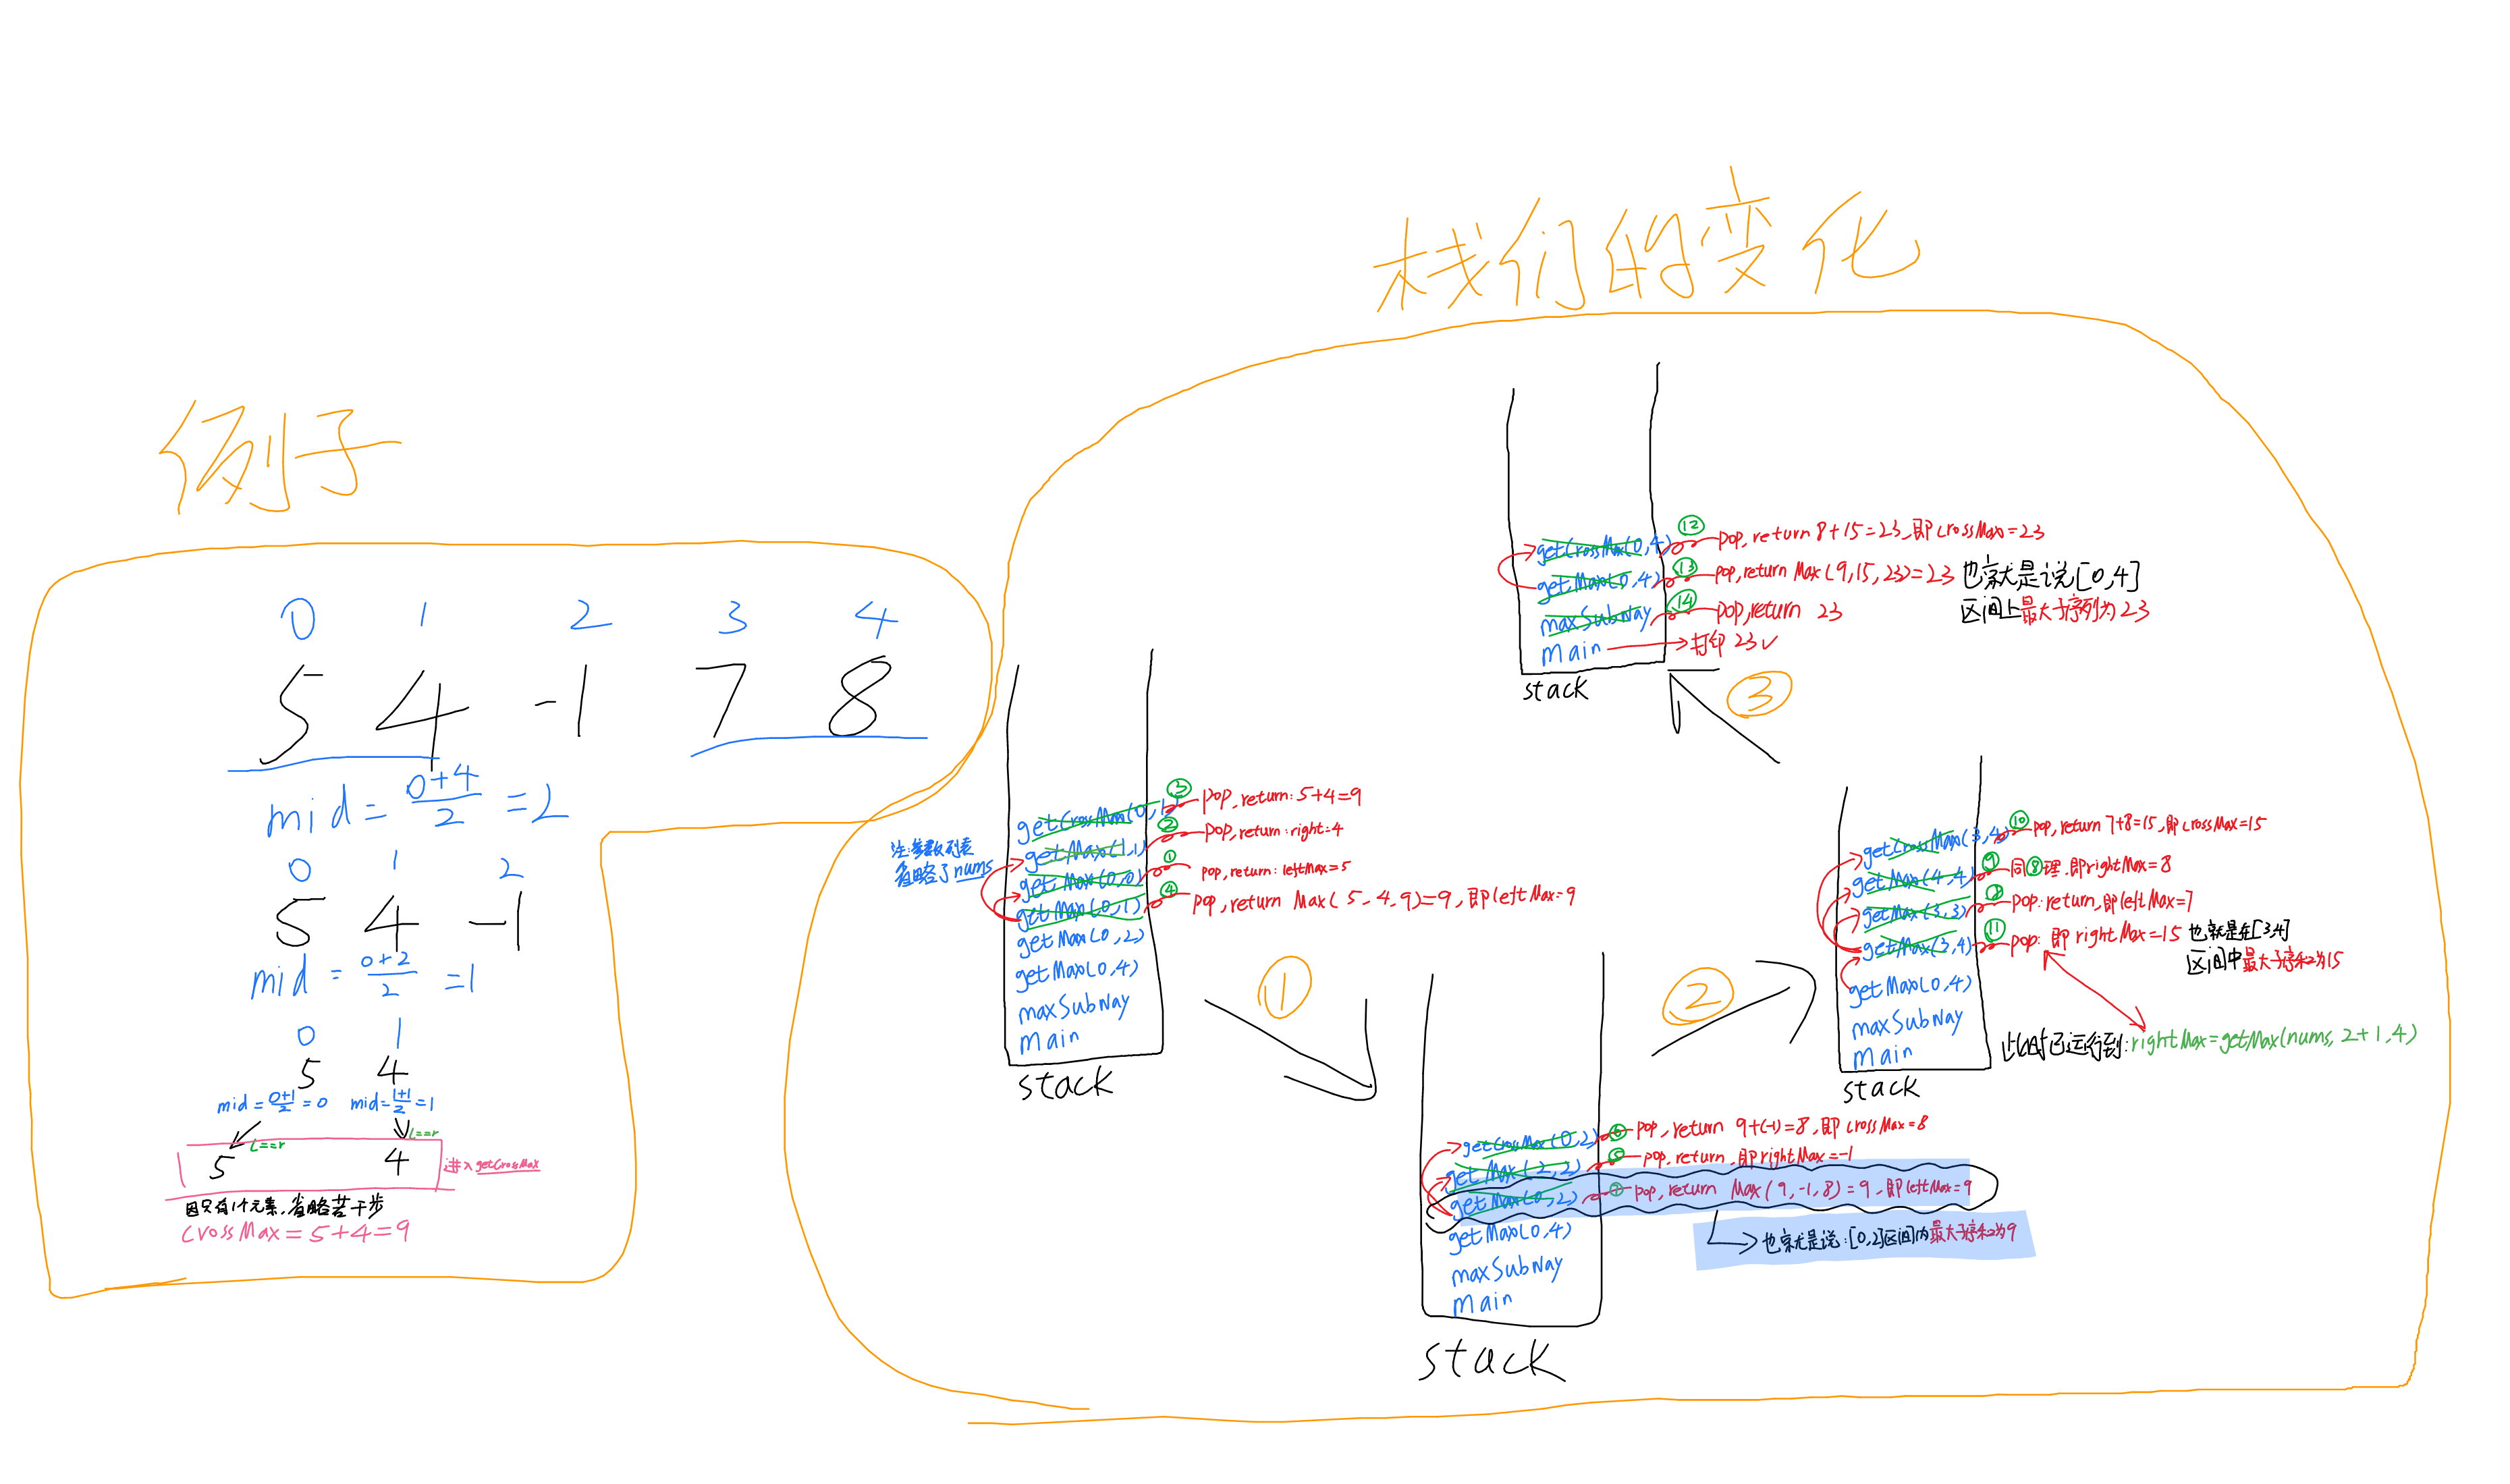 例子
0 1 2 3 4
5 4 -1 7 8
mid = 0+4/2 = 2
0 1 2
5 4 -1
mid = 0+2/2 = 1
0 1
5 4
mid = 0+1/2 = 0 mid = 1+1/2 = 1
L==r L==r
5 4 进入getCrossMax
因只有1个元素,省略若干步
CrossMax = 5+4=9
栈们的变化
注:参数列表
省略了nums
getCrossMax(0,1) ③ pop, return: 5+4=9
getMax(1,1) ② pop, return: right=4
getMax(0,0) ① pop, return: leftMax=5
getMax(0,1) ④ pop, return Max(5,4,9)=9, 即leftMax=9
getMax(0,2)
getMax(0,4)
maxSubNay
main
stack
①
getCrossMax(0,2) ⑥ pop, return 9+(-1)=8, 即crossMax=8
getMax(2,2) ⑤ pop, return, 即rightMax=-1
getMax(0,2) ⑦ pop, return Max(9,-1,8)=9, 即leftMax=9
也就是说:[0,2]区间内最大子序和为9
getMax(0,4)
maxSubNay
main
stack
②
getCrossMax(3,4) ⑩ pop, return 7+8=15, 即crossMax=15
getMax(4,4) ⑨ 同⑧理, 即rightMax=8
getMax(3,3) ⑧ pop: return, 即leftMax=7
getMax(3,4) ⑪ pop: 即rightMax=15 也就是在[3,4]
区间中最大子序和为15
getMax(0,4)
maxSubNay
main
此时已运行到: rightMax=getMax(nums, 2+1, 4)
stack
③
getCrossMax(0,4) ⑫ pop, return 8+15=23, 即crossMax=23
getMax(0,4) ⑬ pop, return Max(9,15,23)=23 也就是说[0,4]
区间上最大子序列为23
maxSubNay ⑭ pop, return 23
main 打印 23✓
stack